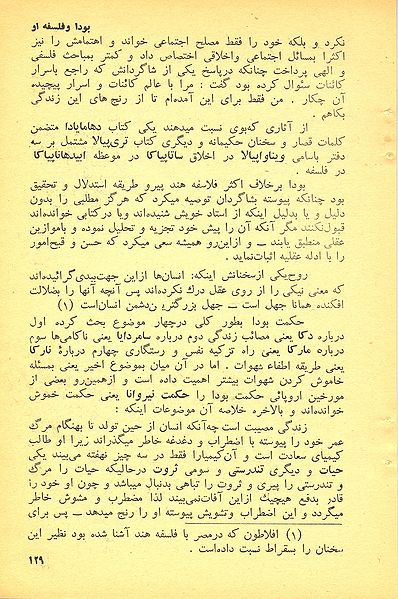 بودا وفلسفه او
نکرد و بلکه خود را فقط مصلح اجتماعی خواند و اهتمامش را نیز
اکثرا بمسائل اجتماعی واخلاقی اختصاص داد و کمتر بمباحث فلسفی
و الهی پرداخت چنانکه درپاسخ یکی از شاگردانش که راجع باسرار
کائنات سئوال کرده بود گفت : مرا با عالم کائنات و اسرار پیچیده
آن چکار . من فقط برای این آمده‌ام تا از رنج‌های این زندگی
بکاهم .
از آثاری که‌بوی نسبت میدهند یکی کتاب دهامابادا متضمن
کلمات قصار و سخنان حکیمانه و دیگری کتاب تری‌پیالا مشتمل بر سه
دفتر باسامی ویناواپیالا در اخلاق ساتاپیاکا در موعظه ابیدهاناپیاکا
در فلسفه .
بودا برخلاف اکثر فلاسفه هند پیرو طریقه استدلال و تحقیق
بود چنانکه پیوسته بشاگردان توصیه میکرد که هرگز مطلبی را بدون
دلیل و یا بدلیل اینکه از استاد خویش شنیده‌اند ویا درکتابی خوانده‌اند
قبول‌نکنند مگر آنکه آن را پیش خود تجزیه و تحلیل نموده و باموازین
عقلی منطبق یابند ــ و ازاین‌رو همیشه سعی میکرد که حسن و قبح‌امور
را با ادله عقلیه اثبات‌نماید .
روح‌یکی ازسخنانش اینکه: انسان‌ها ازاین جهت‌ببدی‌گرائیده‌اند
که معنی نیکی را از روی عقل درك نکرده‌اند پس آنچه آنها را بضلالت
افکنده همانا جهل است ــ جهل بزرگترین دشمن انسان‌است (۱)
حکمت بودا بطور کلی درچهار موضوع بحث کرده اول
درباره دکا یعنی مصائب زندگی دوم درباره سامردایا یعنی ناکامی‌ها سوم
درباره مارکا یعنی راه تزکیه نفس و رستگاری چهارم دربارهٔ نارکا
یعنی طریقه اطفاء شهوات . اما در آن میان بموضوع اخیر یعنی بمسئله
خاموش کردن شهوات بیشتر اهمیت داده است و ازهمین‌رو بعضی از
مورخین اروپائی حکمت بودا را حکمت نیروانا یعنی حکمت خموش
خوانده‌اند و بالاخره خلاصه آن موضوعات اینکه :
زندگی مصیبت است چه‌آنکه انسان از حین تولد تا بهنگام مرگ
عمر خود را پیوسته با اضطراب و دغدغه خاطر میگذراند زیرا او طالب
کیمیای سعادت است و آن‌کیمیارا فقط در سه چیز نهفته می‌بیند یکی
حیات و دیگری تندرستی و سومی ثروت درحالیکه حیات را مرگ
و تندرستی را پیری و ثروت را تباهی بدنبال میباشد و چون او خود را
قادر بدفع هیچیك ازاین آفات‌نمی‌بیند لذا مضطرب و مشوش خاطر
میگردد و این اضطراب وتشویش پیوسته او را رنج میدهد ــ پس برای
(۱) افلاطون که درمصر با فلسفه هند آشنا شده بود نظیر این
سخنان را بسقراط نسبت داده‌است .
۱۲۹